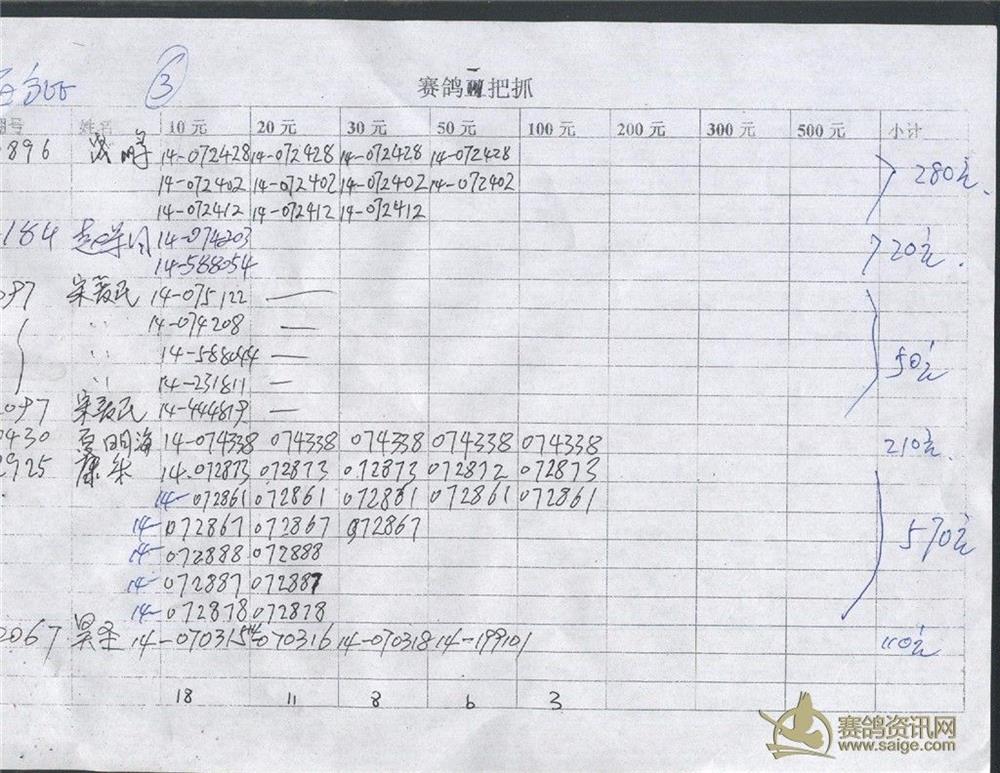 ③
赛鸽一把抓
号 姓名 10元 20元 30元 50元 100元 200元 300元 500元 小计
896 14-072428 14-072428 14-072428 14-072428
14-072402 14-072402 14-072402 14-072402 280元.
14-072412 14-072412 14-072412
184 14-074203 20元.
14-588054
097 14-075122 —
〃 14-074208 —
〃 14-588044 — 50元
〃 14-231811 —
097 14-444819 —
0430 明海 14-074338 074338 074338 074338 074338 210元.
2925 14-072873 072873 072873 072872 072873
14-072861 072861 072861 072861 072861
14-072867 072867 072867 570元
14-072888 072888
14-072887 072887
14-072878 072878
2067 14-070315 14-070316 14-070318 14-199101 110元
18 11 8 6 3
赛鸽资讯网
www.saige.com